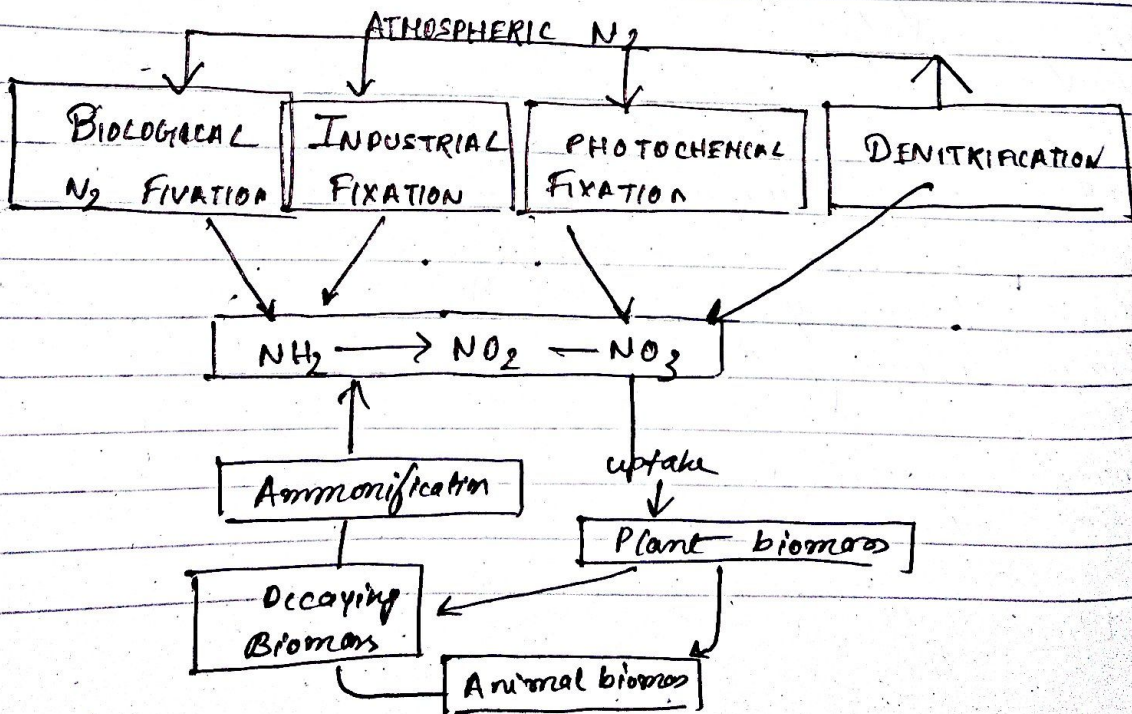 ATMOSPHERIC N2
BIOLOGICAL
N2 FIVATION
INDUSTRIAL
FIXATION
PHOTOCHEMICAL
FIXATION
DENITRIFICATION
NH2 → NO2 — NO3
Ammonification
uptake
Plant biomass
Decaying
Biomass
Animal biomass